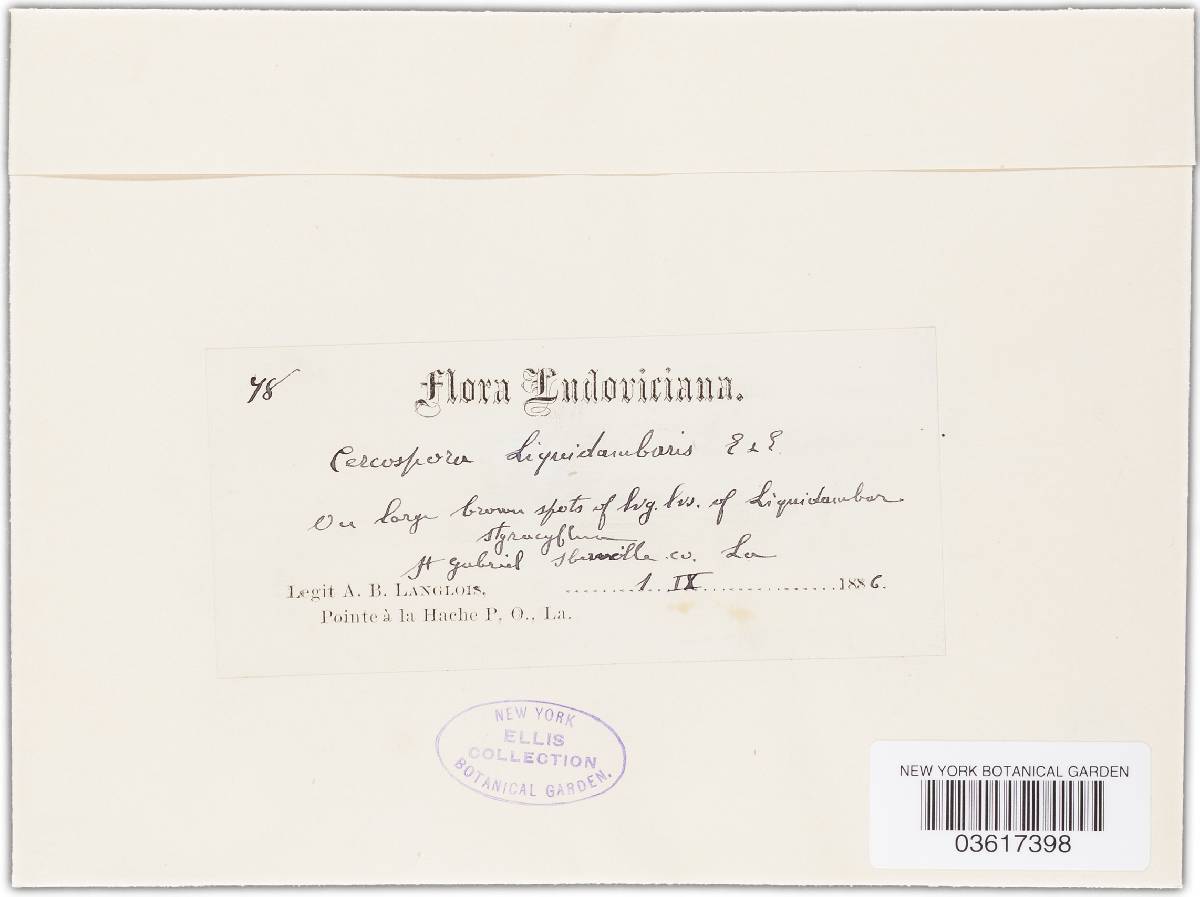 78
Flora Ludoviciana.
Cercospora Liquidambaris E & E.
On large brown spots of lvg. lvs. of Liquidambar
styracyflua
St Gabriel Iberville co. La
Legit A. B. Langlois, 1 IX 1886.
Pointe à la Hache P. O., La.
NEW YORK
ELLIS
COLLECTION
BOTANICAL GARDEN.
NEW YORK BOTANICAL GARDEN
03617398